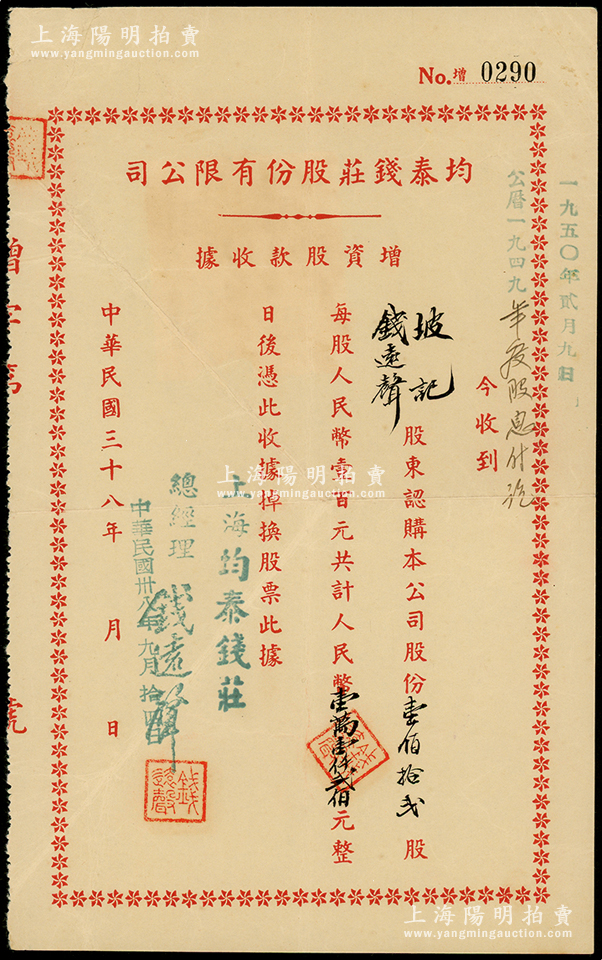 上海陽明拍賣
www.yangmingauction.com
No. 增 0290
均泰錢莊股份有限公司
增資股款收據
一九五〇年貳月九日
公曆一九四九年度股息付訖
今收到
坡記
錢遠聲
股東認購本公司股份壹佰拾貳股
每股人民幣壹百元共計人民幣壹萬壹仟貳佰元整
日後憑此收據掉換股票此據
上海均泰錢莊
總經理 錢遠聲
中華民國卅八年九月拾四
中華民國三十八年 月 日
錢遠聲
增字第
號
上海陽明拍賣
www.yangmingauction.com
上海陽明拍賣
www.yangmingauction.com